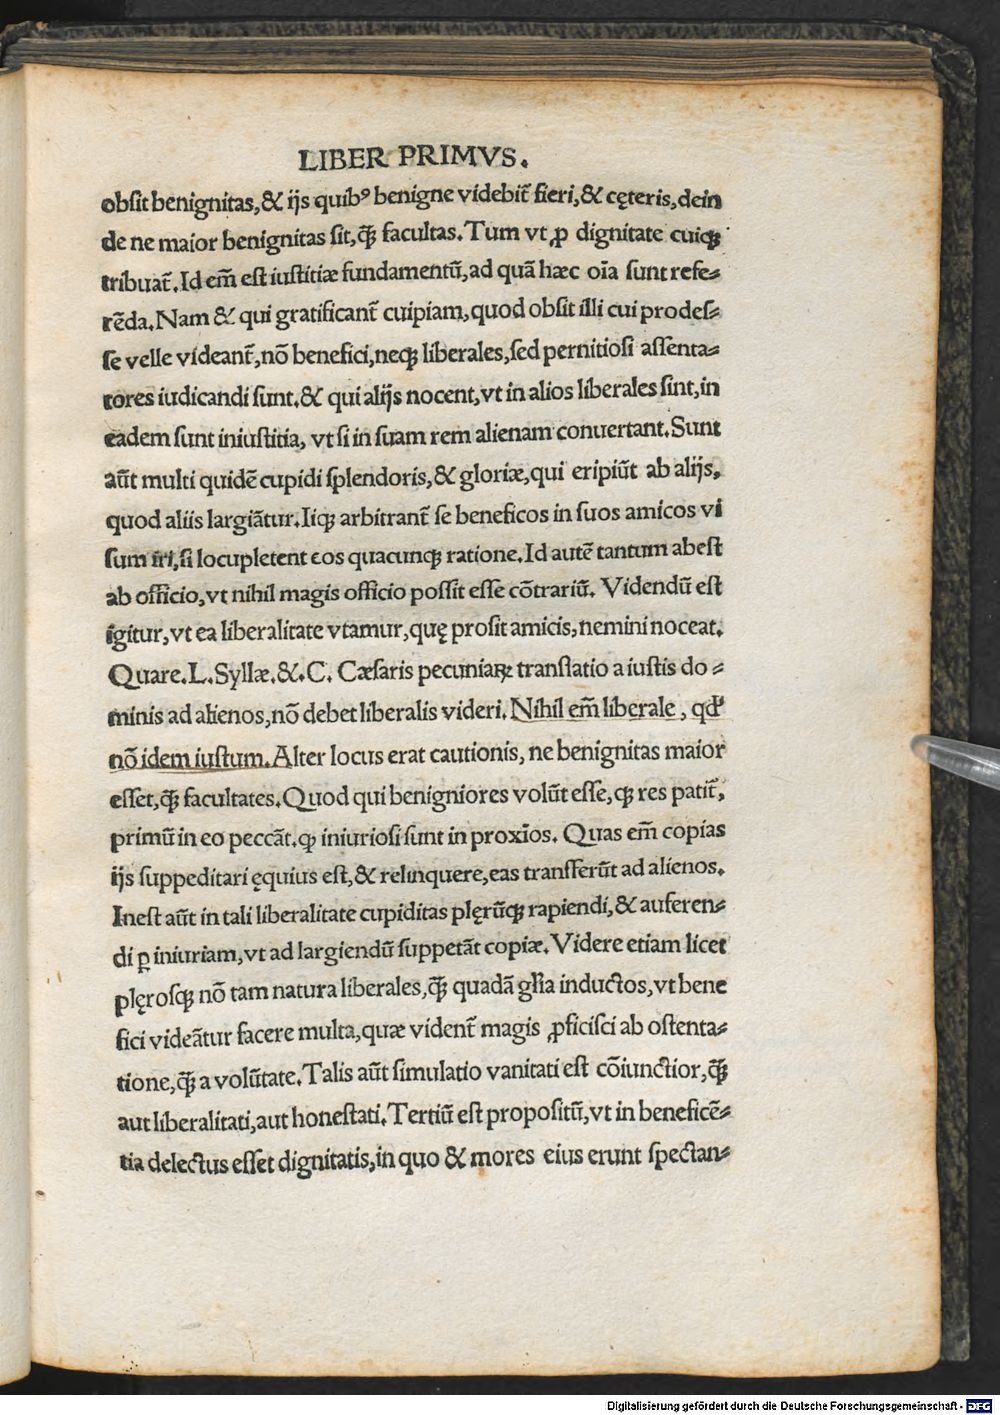 LIBER PRIMVS.
obſit benignitas,& ijs quibꝰ benigne videbit̃ fieri,& cęteris,dein
de ne maior benignitas ſit,ꝙ̃ facultas.Tum vt ꝓ dignitate cuiqꝫ
tribuat̃.Id em̃ eſt iuſtitiæ fundamentũ,ad quã hæc oĩa ſunt refe⸗
rẽda.Nam & qui gratificant̃ cuipiam,quod obſit illi cui prodeſ⸗
ſe velle videant̃,nõ benefici,neqꝫ liberales,ſed pernitioſi aſſenta⸗
tores iudicandi ſunt.& qui alijs nocent,vt in alios liberales ſint,in
eadem ſunt iniuſtitia, vt ſi in ſuam rem alienam conuertant.Sunt
aũt multi quidẽ cupidi ſplendoris,& gloriæ,qui eripiũt ab alijs,
quod aliis largiãtur.Iiqꝫ arbitrant̃ ſe beneficos in ſuos amicos vi
ſum iri,ſi locupletent eos quacunqꝫ ratione.Id autẽ tantum abeſt
ab officio,vt nihil magis officio poſſit eſſe cõtrariũ. Videndũ eſt
igitur,vt ea liberalitate vtamur,quę proſit amicis,nemini noceat.
Quare.L.Syllæ.&.C. Cæſaris pecuniaꝝ translatio a iuſtis do ⸗
minis ad alienos,nõ debet liberalis videri.Nihil em̃ liberale, qđ
nõ idem iuſtum.Alter locus erat cautionis, ne benignitas maior
eſſet,ꝙ̃ facultates.Quod qui benigniores volũt eſſe,qꝫ res patit̃,
primũ in eo peccãt.ꝙ iniurioſi ſunt in proxĩos. Quas em̃ copias
ijs ſuppeditari ęquius eſt,& relinquere,eas transferũt ad alienos.
Ineſt aũt in tali liberalitate cupiditas plęrũqꝫ rapiendi,& auferen⸗
di ꝑ iniuriam,vt ad largiendũ ſuppetãt copiæ.Videre etiam licet
plęroſqꝫ nõ tam natura liberales,ꝙ̃ quadã glĩa inductos,vt bene
fici videãtur facere multa,quæ vident̃ magis ꝓficiſci ab oſtenta⸗
tione,ꝙ̃ a volũtate.Talis aũt ſimulatio vanitati eſt cõiunctior,ꝙ̃
aut liberalitati,aut honeſtati.Tertiũ eſt propoſitũ,vt in beneficẽ⸗
tia delectus eſſet dignitatis,in quo & mores eius erunt ſpectan⸗
Digitalisierung gefördert durch die Deutsche Forschungsgemeinschaft - DFG